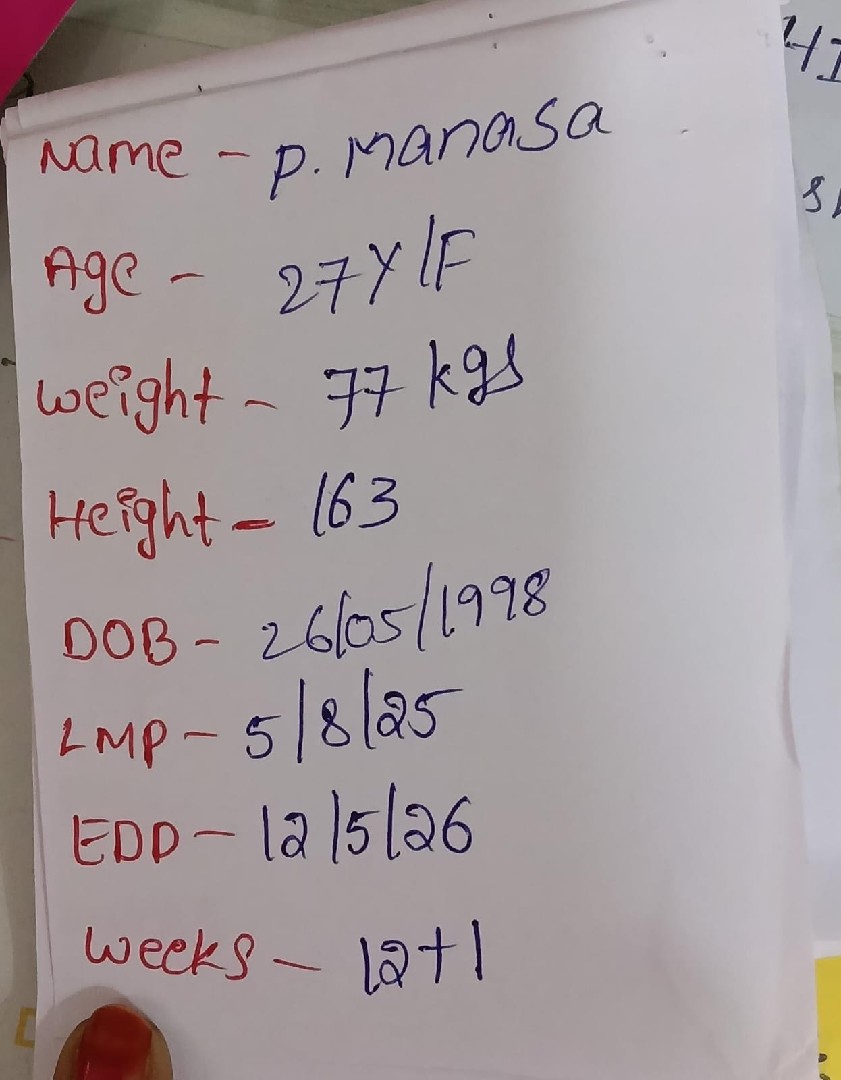 Name - P. Manasa
Age - 27Y/F
Weight - 77 kgs
Height - 163
DOB - 26/05/1998
LMP - 5/8/25
EDD - 12/5/26
Weeks - 12+1